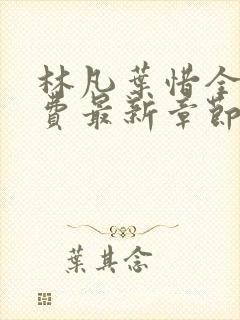 林凡葉惜全
費最新章節
葉其念